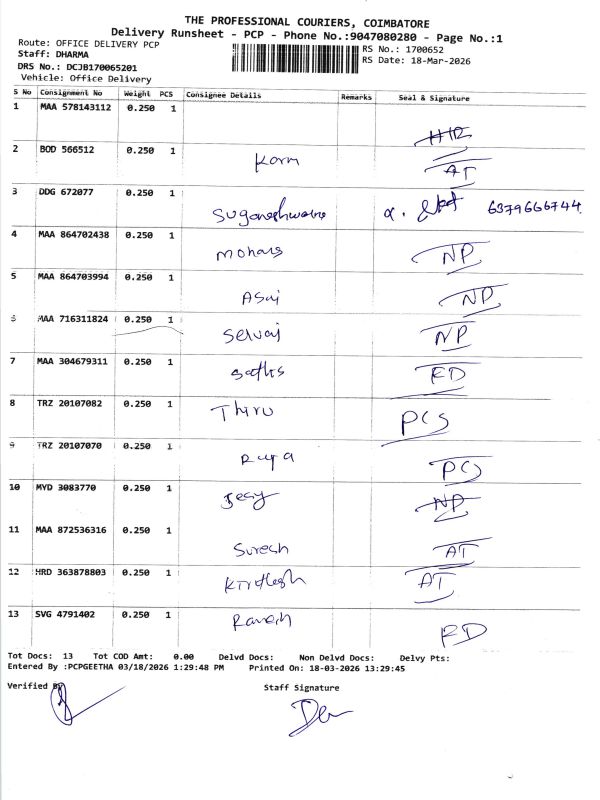 THE PROFESSIONAL COURIERS, COIMBATORE
Delivery Runsheet - PCP - Phone No.:9047080280 - Page No.:1
Route: OFFICE DELIVERY PCP RS No.: 1700652
Staff: DHARMA RS Date: 18-Mar-2026
DRS No.: DCJB170065201
Vehicle: Office Delivery
S No Consignment No Weight PCS Consignee Details Remarks Seal & Signature
1 MAA 578143112 0.250 1
2 BOD 566512 0.250 1 AT
3 DDG 672077 0.250 1 6379666744
4 MAA 864702438 0.250 1 Mohans NP
5 MAA 864703994 0.250 1 NP
6 MAA 716311824 0.250 1 Selvaj NP
7 MAA 304679311 0.250 1
8 TRZ 20107082 0.250 1 Thiru PCS
9 TRZ 20107070 0.250 1 Rupa
10 MYD 3083770 0.250 1 NP
11 MAA 872536316 0.250 1 Suresh AT
12 HRD 363878803 0.250 1 AT
13 SVG 4791402 0.250 1 Ramesh
Tot Docs: 13 Tot COD Amt: 0.00 Delvd Docs: Non Delvd Docs: Delvy Pts:
Entered By :PCPGEETHA 03/18/2026 1:29:48 PM Printed On: 18-03-2026 13:29:45
Verified By Staff Signature